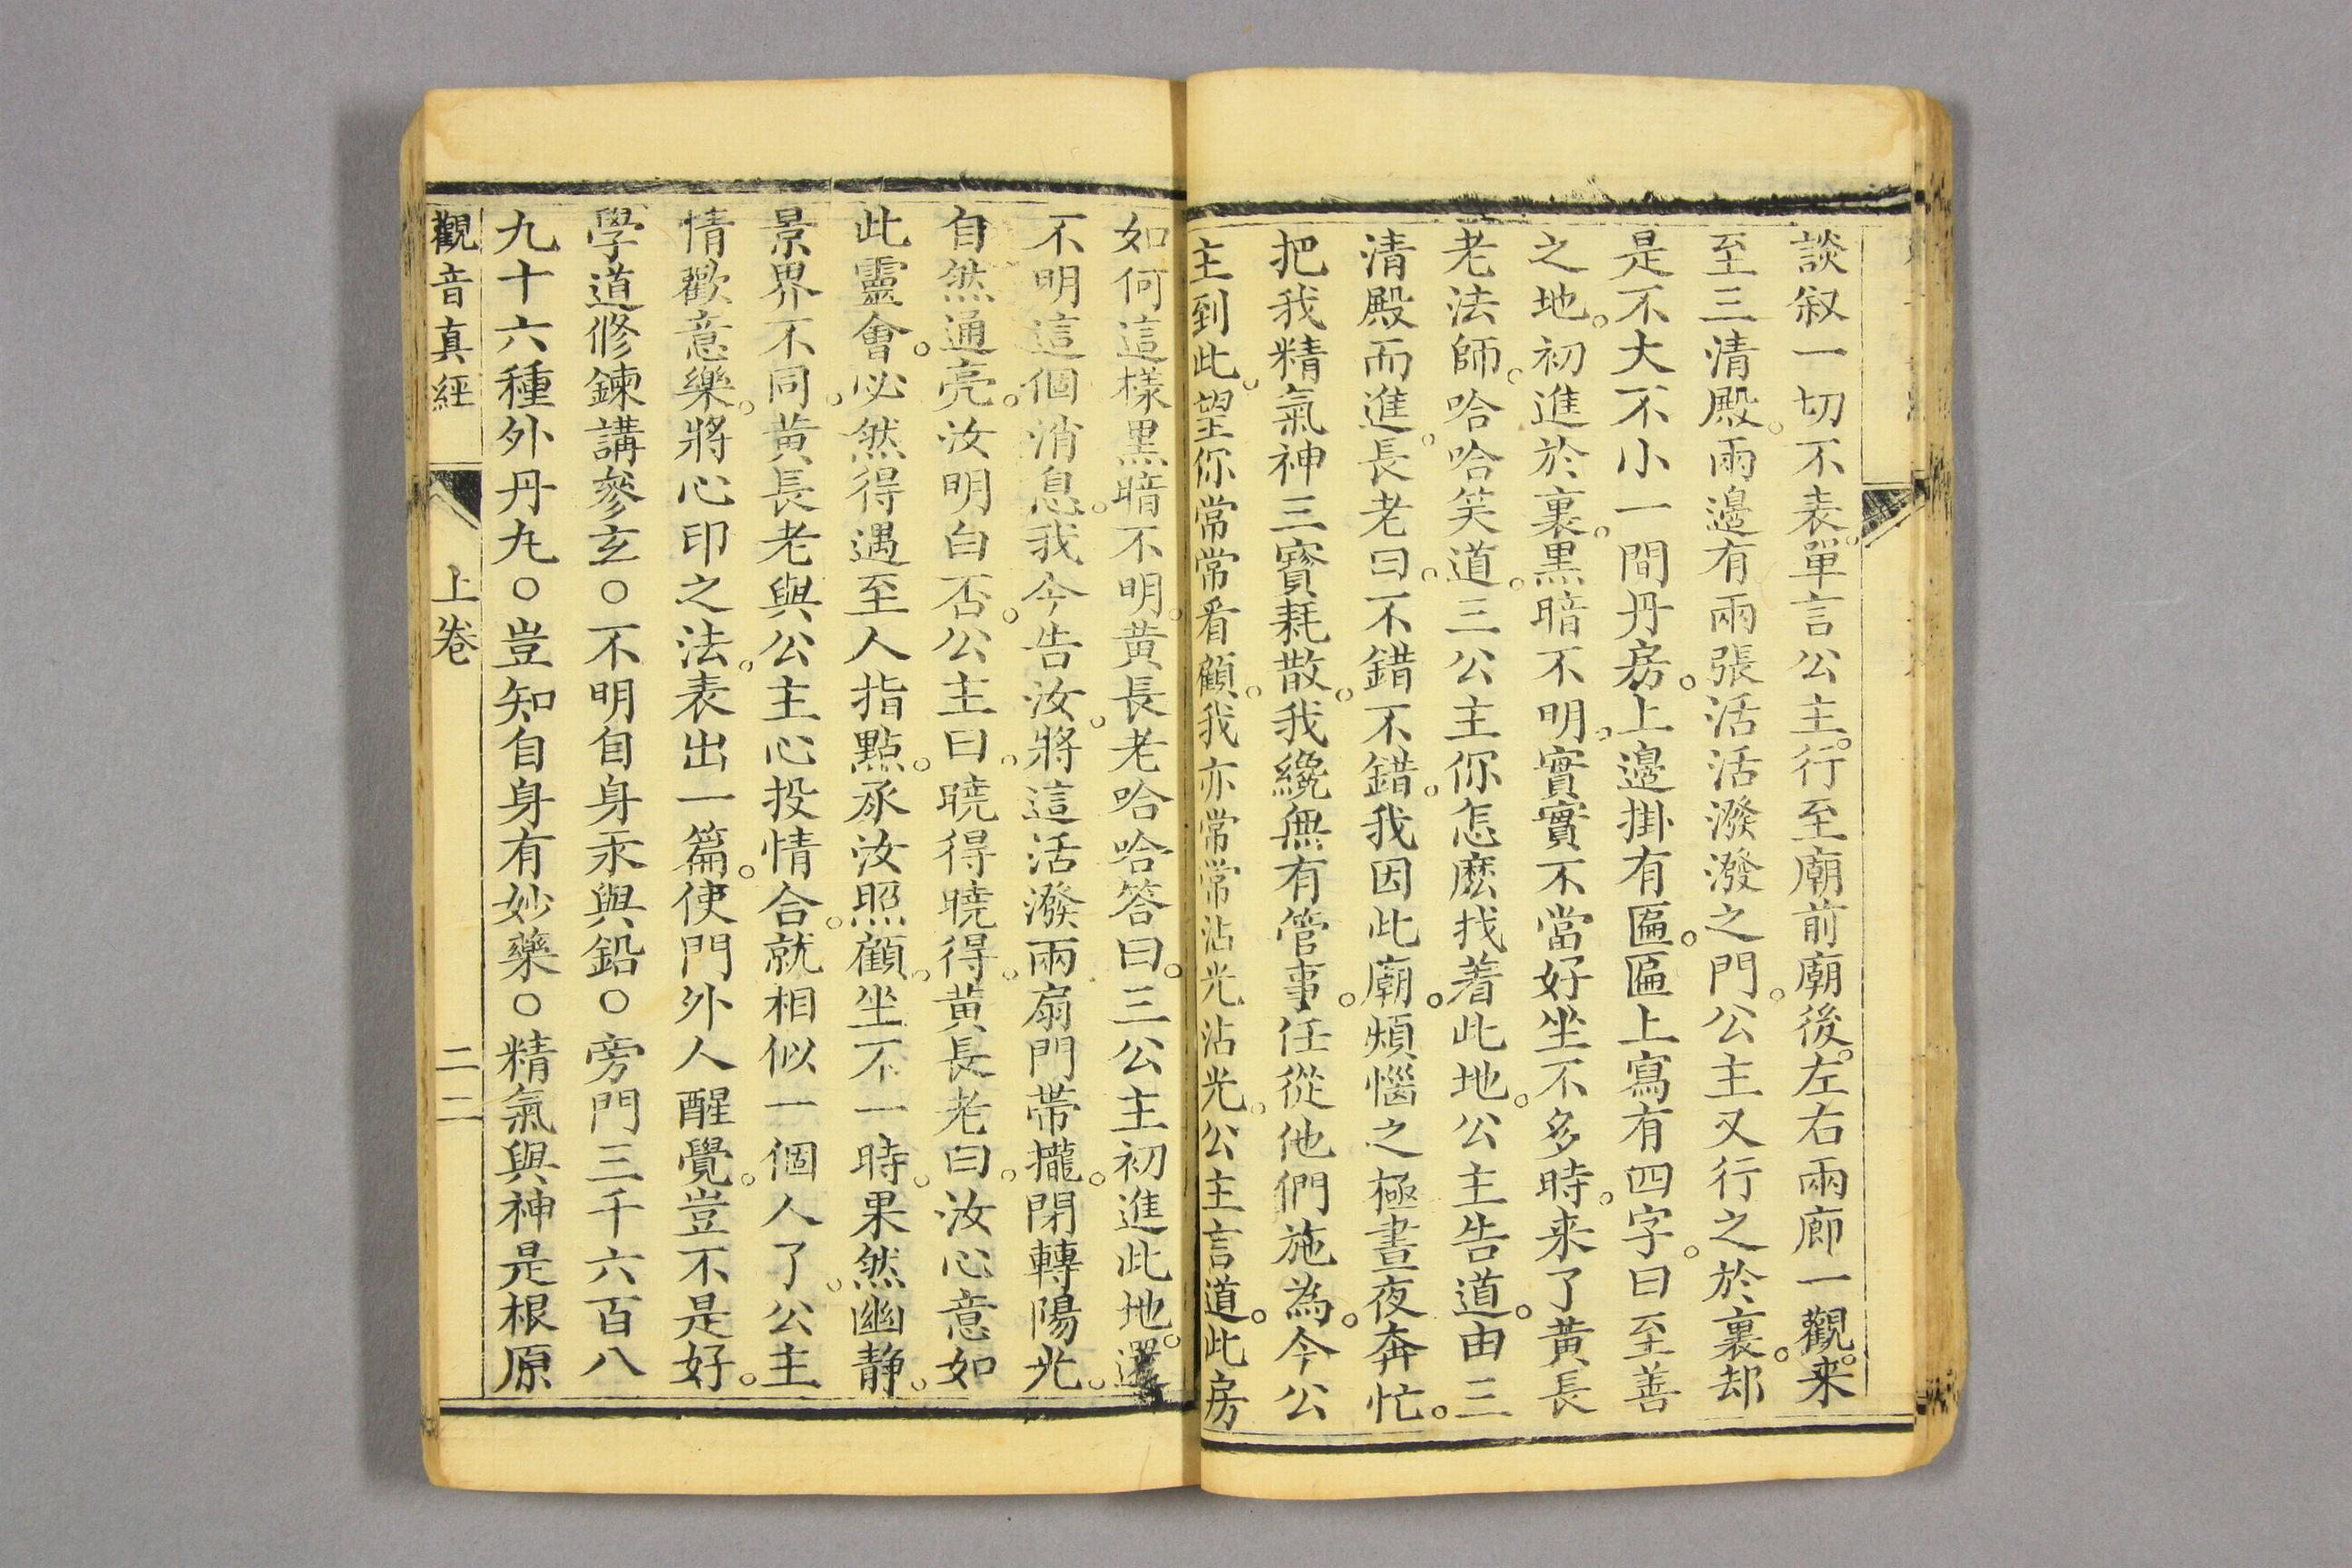 談叙一切不表。單言公主。行至廟前廟後。左右兩廊一觀。来
至三清殿。兩邊有兩張活活潑潑之門。公主又行之於裏。却
是不大不小一間丹房。上邊掛有匾。匾上寫有四字。曰至善
之地。初進於裏。黑暗不明。實實不當好坐。不多時。来了黃長
老法師。哈哈笑道。三公主你怎麽找着此地。公主告道。由三
清殿而進。長老曰。不錯不錯。我因此廟。煩惱之極。晝夜奔忙。
把我精氣神三寶耗散。我纔無有管事。任從他們施為。今公
主到此。望你常常看顧。我亦常常沾光沾光。公主言道。此房
如何這樣黑暗不明。黃長老哈哈答曰。三公主初進此地。還
不明這個消息。我今告汝。將這活潑兩扇門帶攏。閉轉陽光。
自然通亮。汝明白否。公主曰。曉得曉得。黃長老曰。汝心意如
此靈會。必然得遇至人指點。承汝照顧。坐不一時。果然幽静。
景界不同。黃長老與公主心投情合。就相似一個人了。公主
情歡意樂。將心印之法。表出一篇。使門外人醒覺。豈不是好。
學道修鍊講參玄○不明自身汞與鉛○旁門三千六百八
九十六種外丹九○豈知自身有妙藥○精氣與神是根原
觀音真經 上卷 二二